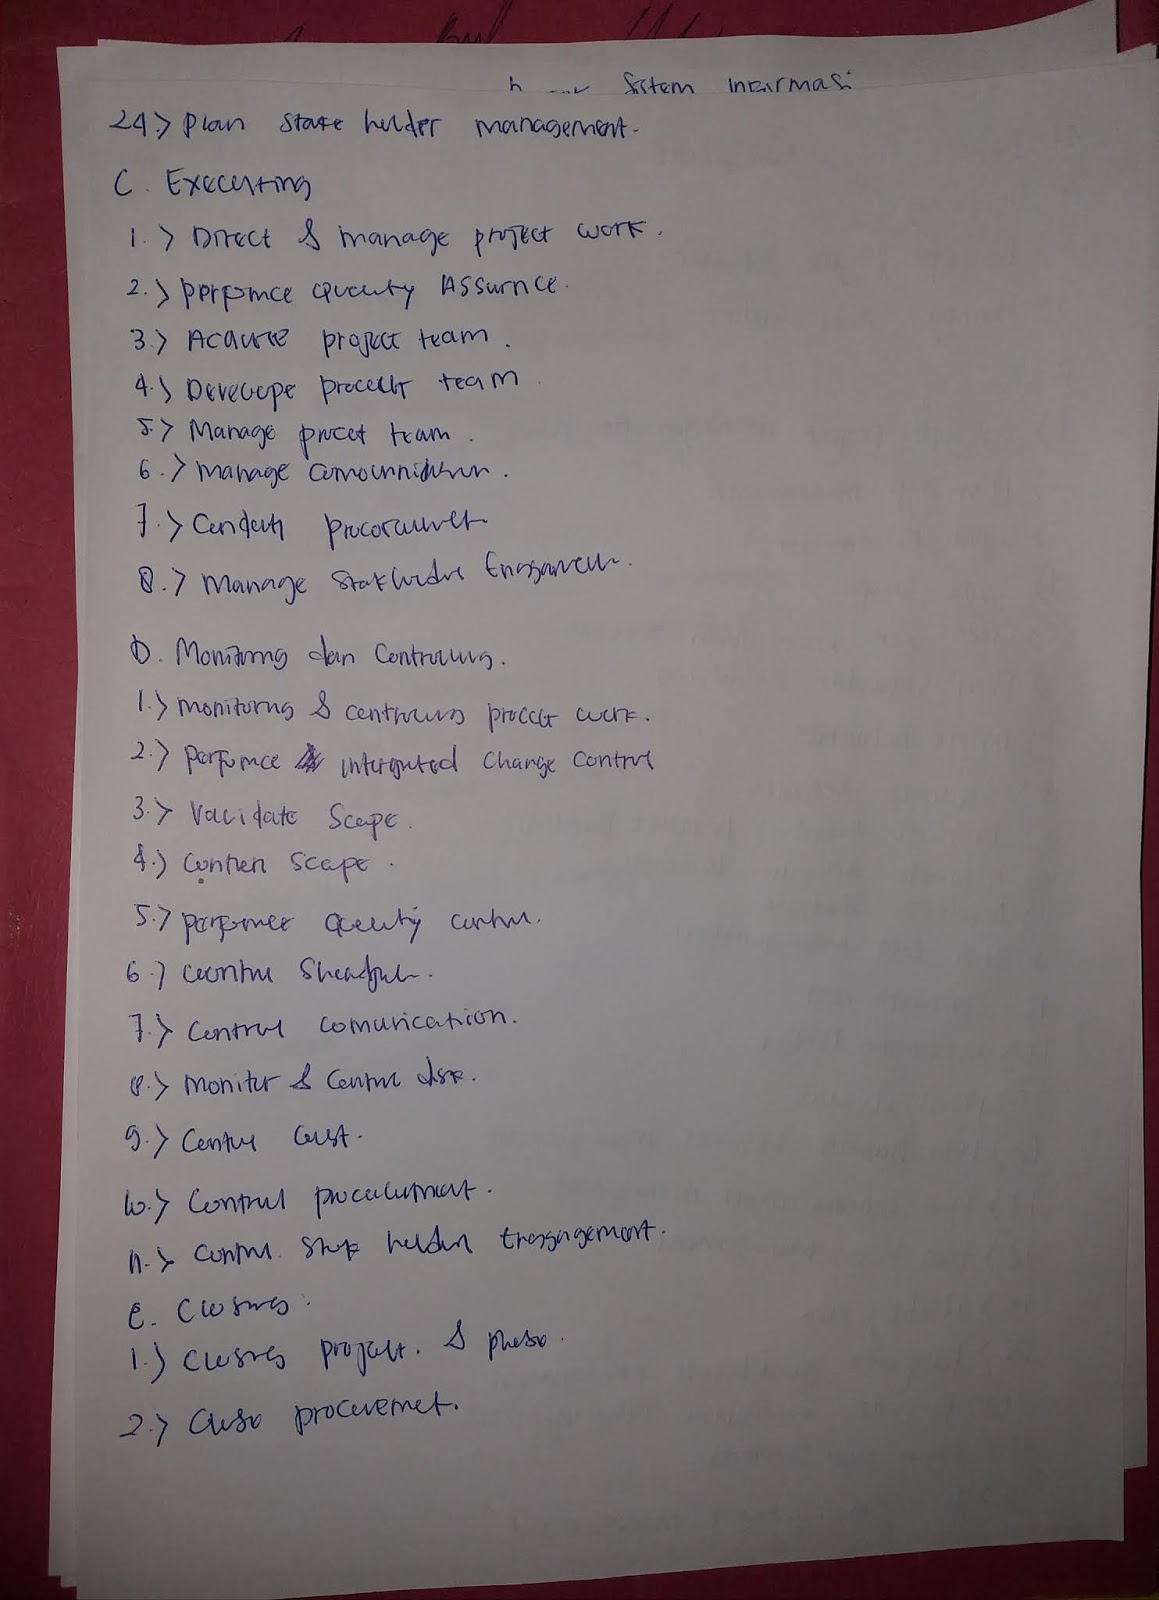 Sistem Informasi
24.> Plan stake holder management.
C. Executing
1.> Direct & manage project work.
2.> perfomce Quality Assurnce.
3.> Acquire project team.
4.> Develope procect team
5.> Manage procet team.
6.> Manage
7.> Conduct
8.> Manage Stakholder
D. Monitorng dan Controling.
1.> Monitorng & controling procect work.
2.> Perfomce integrated change control
3.> Validate Scope.
4.> Control Scope.
5.> Quality control.
6.> Control
7.> Control comunication.
8.> Monitor & Control
9.> Control Cost.
10.> Control procurutment.
11.> Control stak holder Enggagement.
E. Closing
1.> Closing projekt. & phase.
2.> Close procuremet.